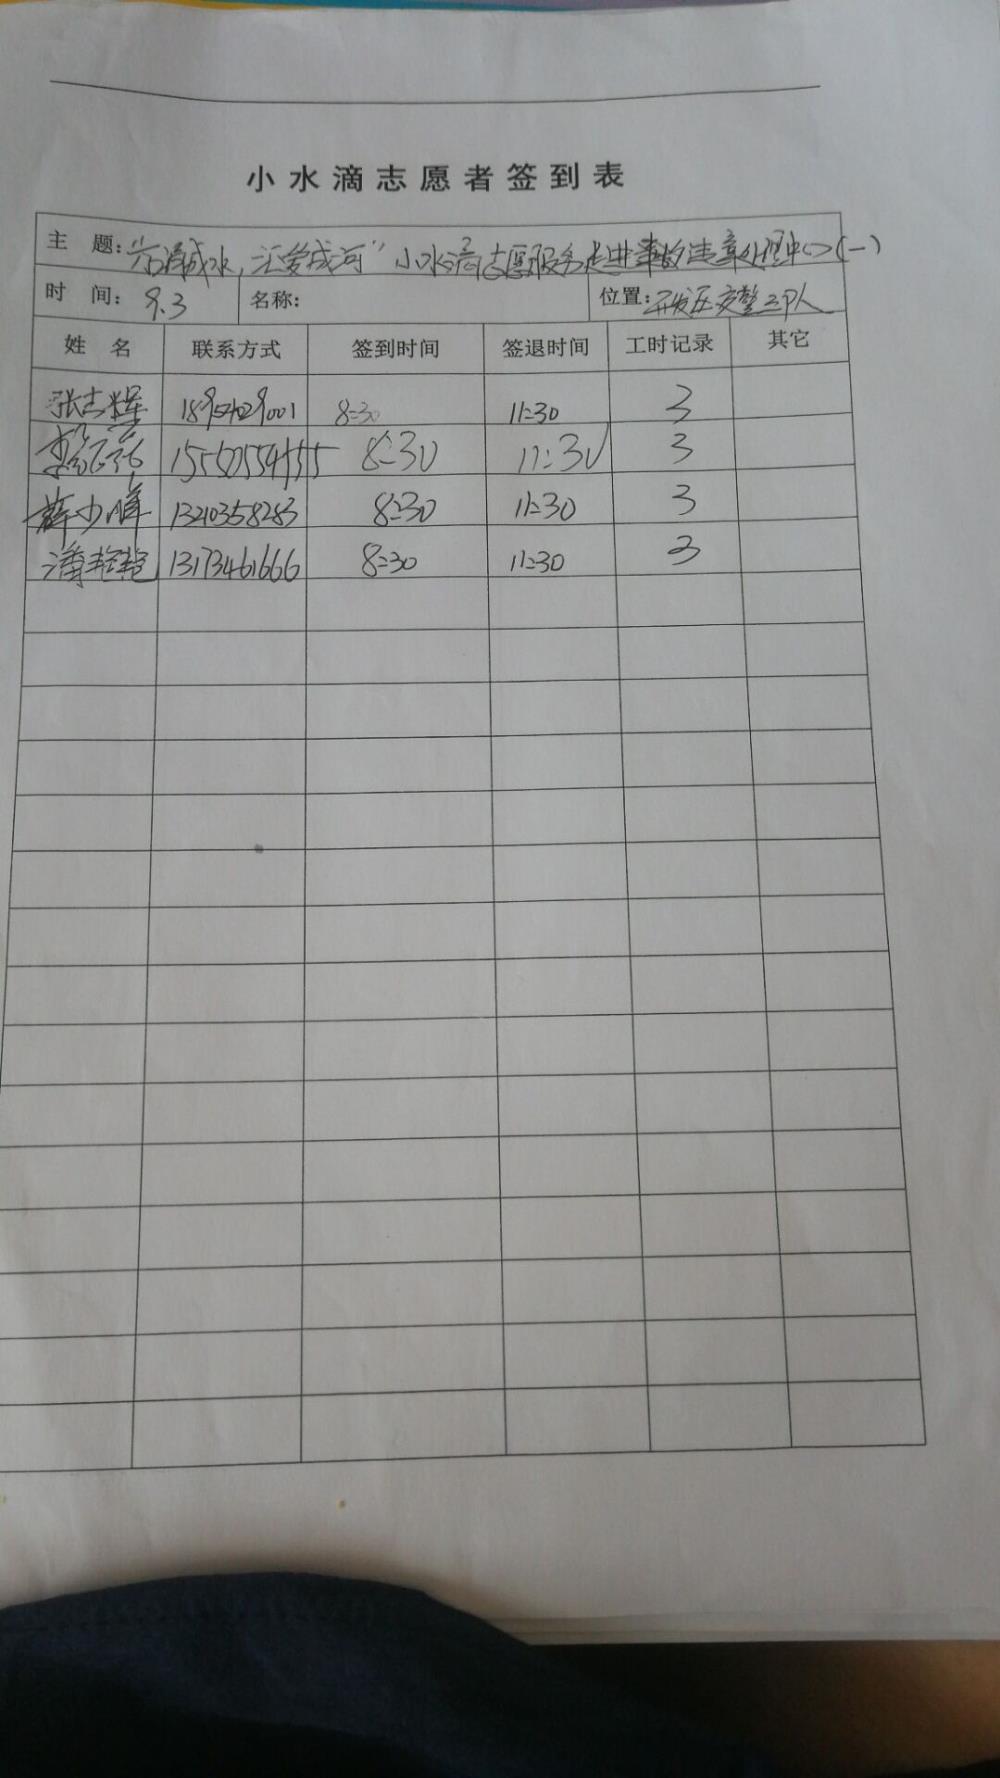 小水滴志愿者签到表
主 题: 成水,汇爱成河" 小水滴志愿服务走进事故违章处理中心(一)
时 间: 9.3 名称: 位置: 开发区交警三队
姓 名 联系方式 签到时间 签退时间 工时记录 其它
张志辉 8:30 11:30 3
8:30 11:30 3
薛少峰 13210358283 8:30 11:30 3
潘艳艳 13173461666 8:30 11:30 3